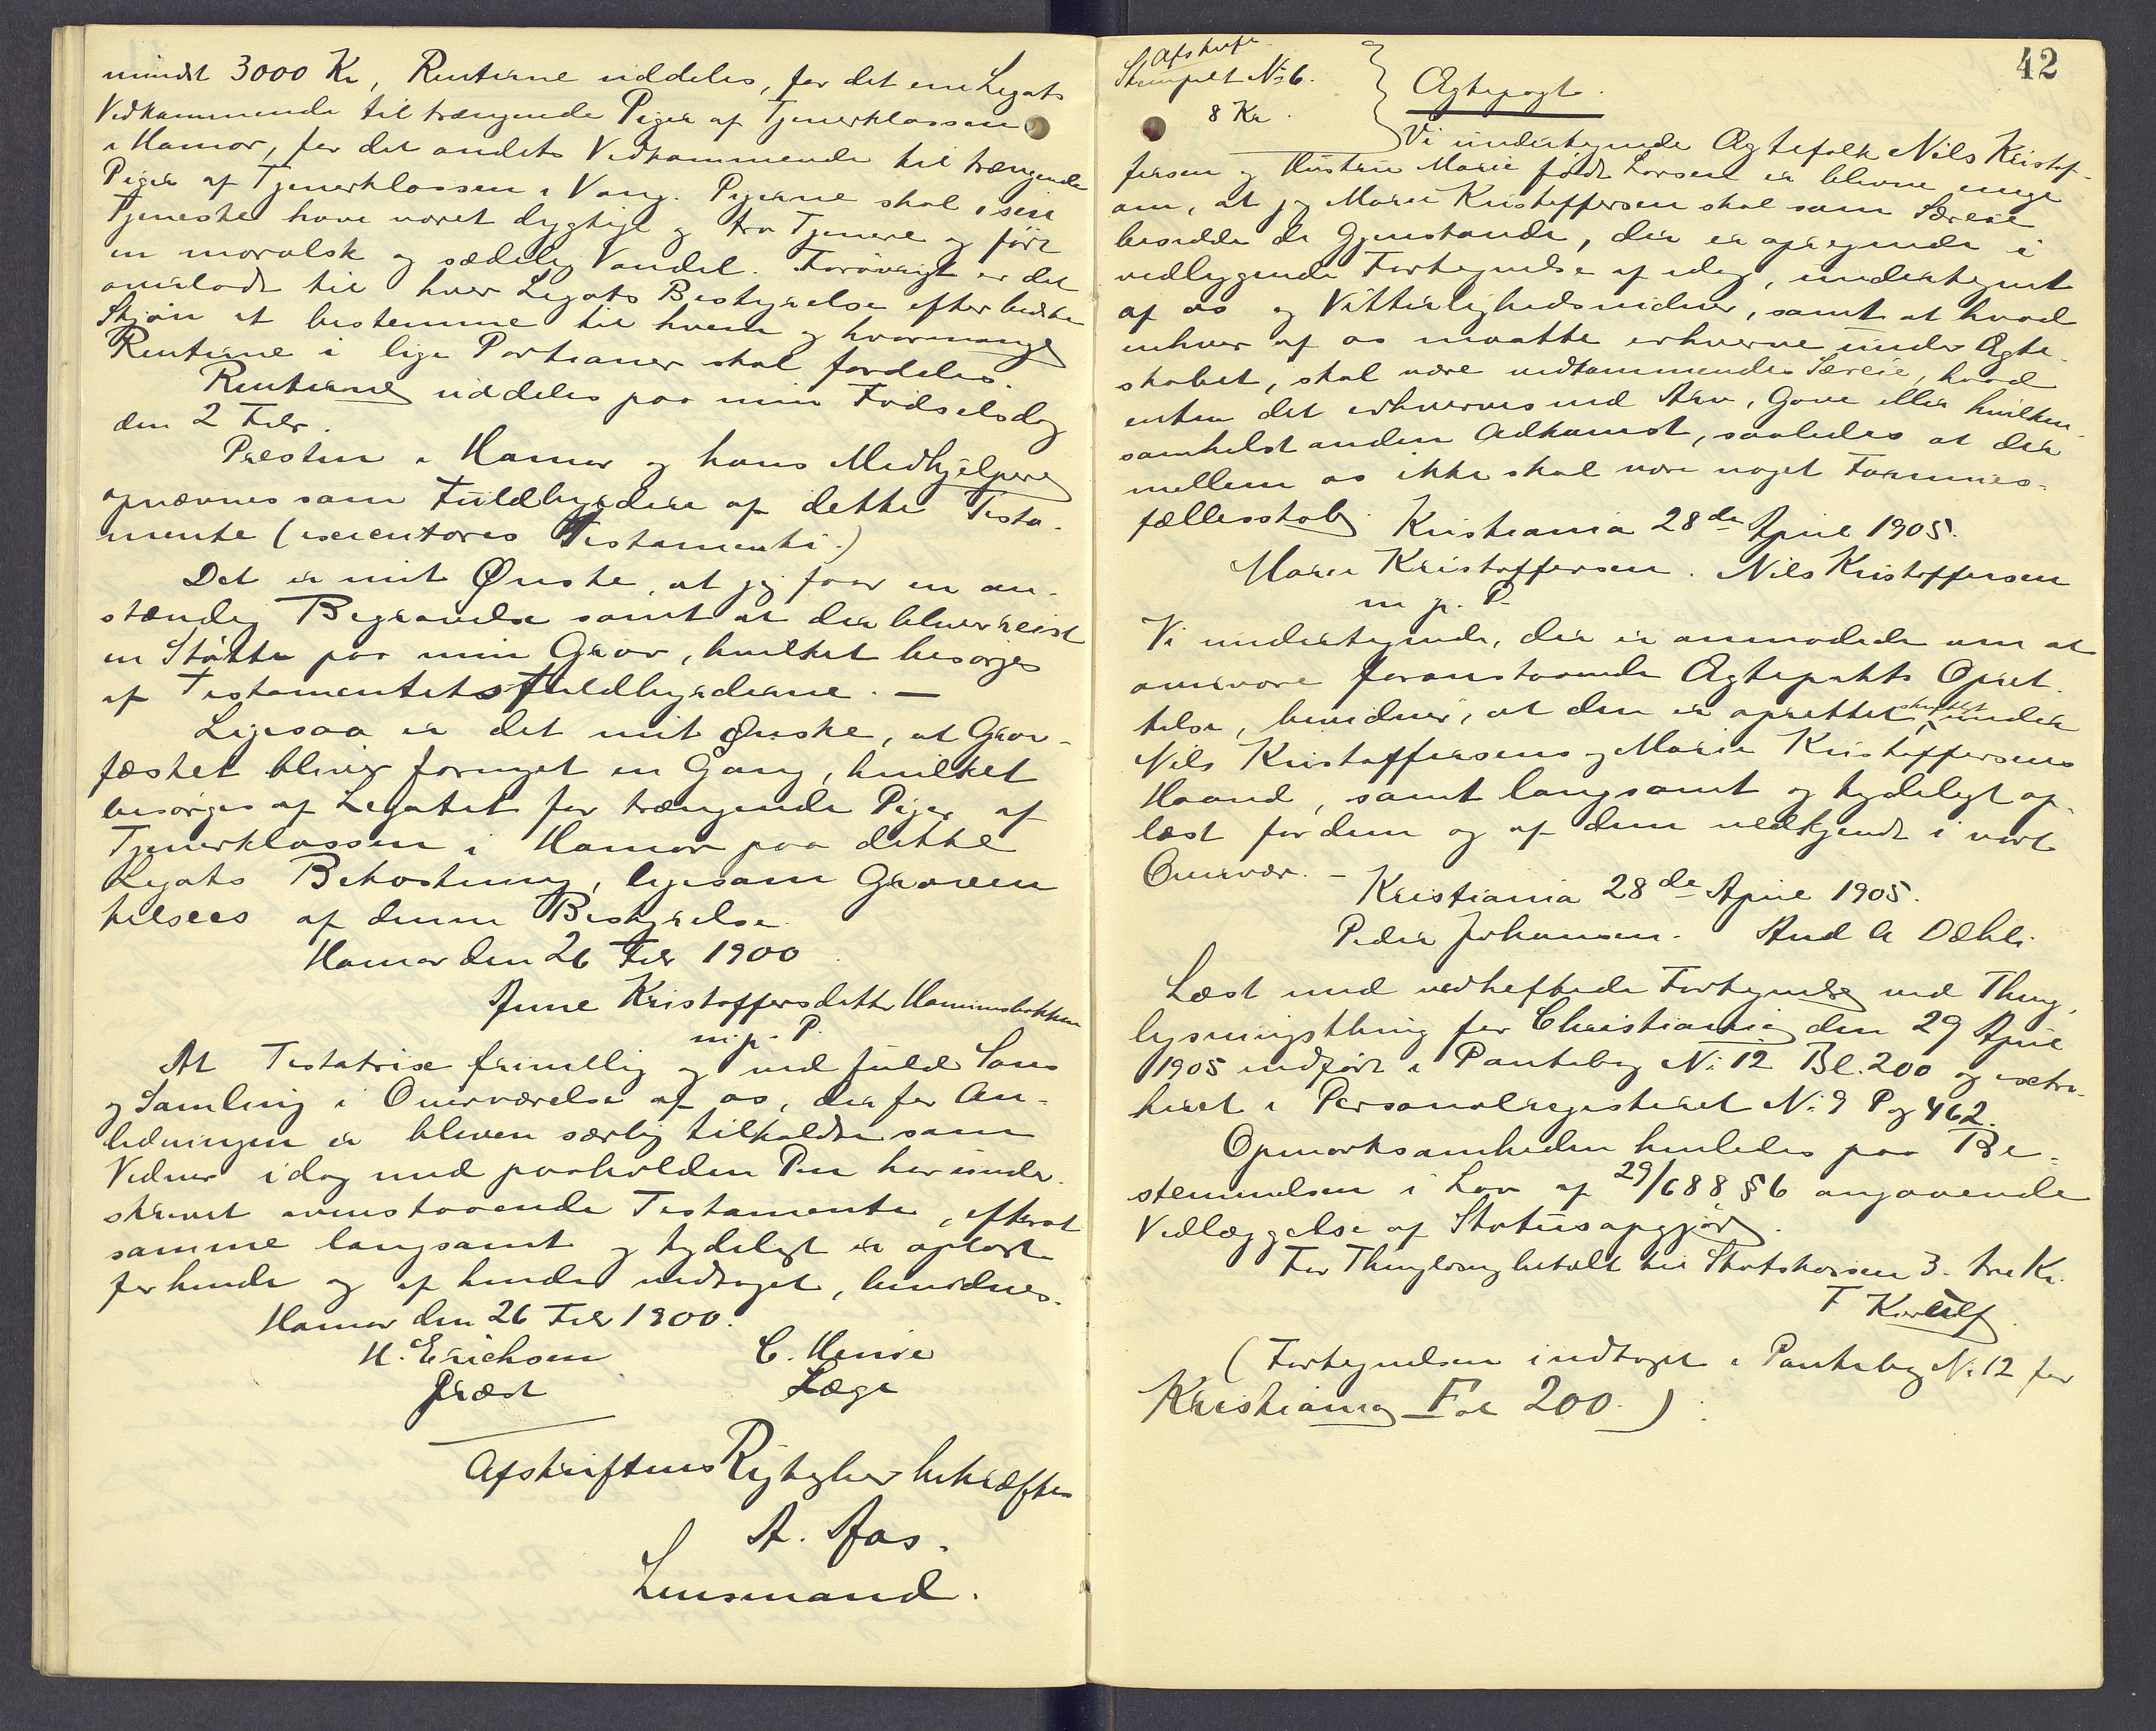 mindst 3000 Kr, Renterne uddeles, for det ene Legats
Vedkommende til trængende Piger af Tjenerklassen
i Hamar, for det andets Vedkommende til trængende
Piger af Tjenerklassen i Vang. Pigerne skal i sin
Tjeneste have været dygtige og tro Tjenere og ført
en moralsk og sædelig Vandel. Forøvrigt er det
overladt til hver Legats Bestyrelse efter bedste
Skjøn at bestemme til hvem og hvormange
Renterne i lige Portioner skal fordeles.
Renterne uddeles paa min Fødselsdag
den 2 Febr.
Præsten i Hamar og hans Medhjelpere
opnævnes som Fuldbyrdere af dette Testa-
mente (executores Testamenti.)
Det er mit Ønske, at jeg faar en an-
stændig Begravelse samt at der bliver reist
en Støtte paa min Grav, hvilket besørges
af Testamentets Fuldbyrderne. —
Ligesaa er det mit Ønske, at Grav-
fæstet bliver fornyet en Gang, hvilket
besørges af Legatet for trængende Piger af
Tjenerklassen i Hamar paa dette
Legats Bekostning, ligesom Graven
tilsees af denne Bestyrelse.
Hamar den 26 Febr 1900
Anne Kristoffersdatter Hommersbakken
m. p. P.
At Testatrix frivillig og med fuld Sans
og Samling i Overværelse af os, der for An-
ledningen er bleven særlig tilkaldte som
Vidner idag med paaholden Pen har under-
skrevet ovenstaaende Testamente, efterat
samme langsomt og tydeligt er oplæst
for hende og af hende vedtaget, bevidnes.
Hamar den 26 Febr 1900.
H. Erichsen C. Heise
Præst Læge
Afskriftens Rigtighed bekræftes
A. Aas.
Lensmand.
42
Afskrift
Stempelt No 6.
8 Kr.
Ægtepagt.
Vi undertegnede Ægtefolk Nils Kristof-
fersen og Hustru Marie født Larsen er blevne enige
om, at jeg Marie Kristoffersen skal som Særeie
besidde de Gjenstande, der er opregnede i
vedliggende Fortegnelse af idag, undertegnet
af os og Vitterlighedsvidner, samt at hvad
enhver af os maatte erhverve under Ægte-
skabet, skal være vedkommendes Særeie, hvad
enten det erhverves ved Arv, Gave eller hvilken-
somhelst anden Adkomst, saaledes at der
mellem os ikke skal være noget Formues-
fællesskab. Kristiania 28de April 1905.
Marie Kristoffersen. Nils Kristoffersen
m. p. P.
Vi undertegnede, der er anmodede om at
overvære foranstaaende Ægtepakts Opret-
telse, bevidner, at den er oprettet skriftligt under
Nils Kristoffersens og Marie Kristoffersens
Haand, samt langsomt og tydeligt op-
læst for dem og af dem vedkjendt i vort
Overvær. – Kristiania 28de April 1905.
Peder Johansen. And A Dæhli.
Læst med vedheftede Fortegnelse ved Thing-
lysningsthing for Christiania den 29 April
1905 indført i Pantebog No 12 Bl. 200 og extra-
heret i Personalregisteret No 9 Pag 462.
Opmærksomheden henledes paa Be-
stemmelsen i Lov af 29/6 88 § 6 angaaende
Vedlæggelse af Statusopgjør.
For Thinglæsning betalt til Statskassen 3. tre Kr.
F Kierulf.
(Fortegnelsen indtaget i Pantebog No 12 for
Kristiania Fol 200.)